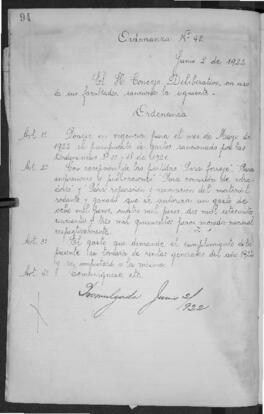 94
Ordenanza Nº 42
Junio 2 de 1922
El H. Concejo Deliberativo, en uso
de sus facultades, sanciona la siguiente
Ordenanza
Art. 1º Poner en vigencia para el mes de Mayo de
1922 el presupuesto de Gastos sancionado por las
Ordenanzas Nº y 11 de 1921.
Art. 2º Con excepción de las partidas "Para forraje", "Para
y
" y "Para reparación y renovación del material
rodante y ganado" que se autoriza un gasto de
ocho mil pesos, cuatro mil pesos, dos mil setecientos
cuarenta y tres mil quinientos pesos moneda nacional
respectivamente.
Art. 3º El gasto que demande el cumplimiento de la
presente se tomará de rentas generales del año 1922
y se imputará a la misma.
Art. 4º Comuníquese, etc.
Promulgada Junio 2/
1922